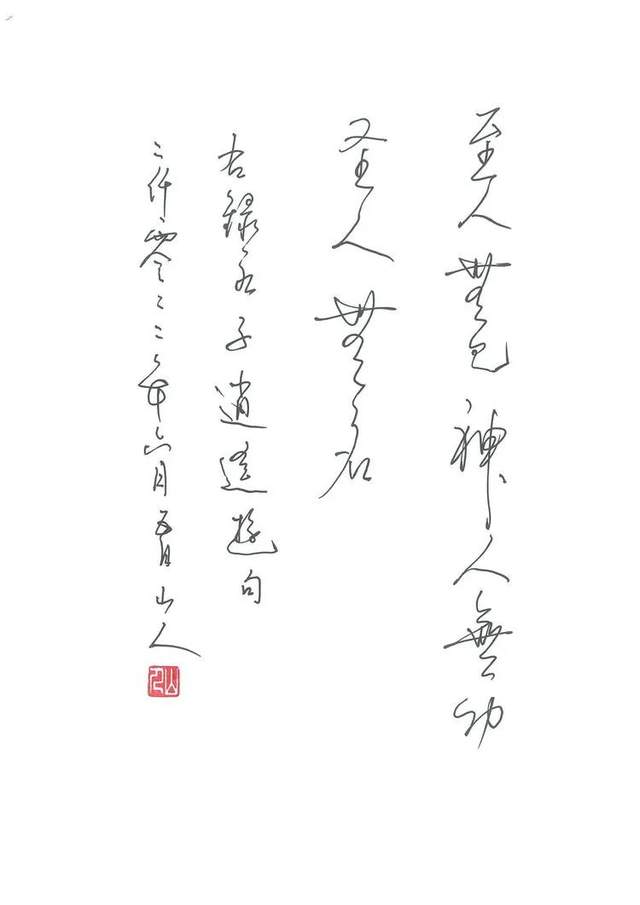 至人無己神人無功
圣人無名
右録庄子逍遥遊句
二仟零二二年六月五日山人